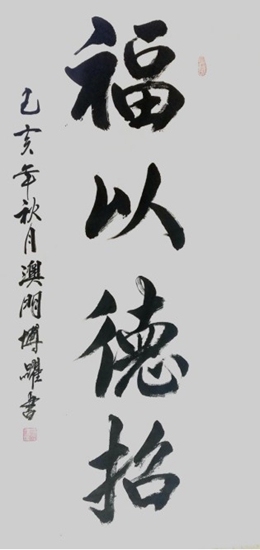 福以德招
己亥年秋月澳門博躍書